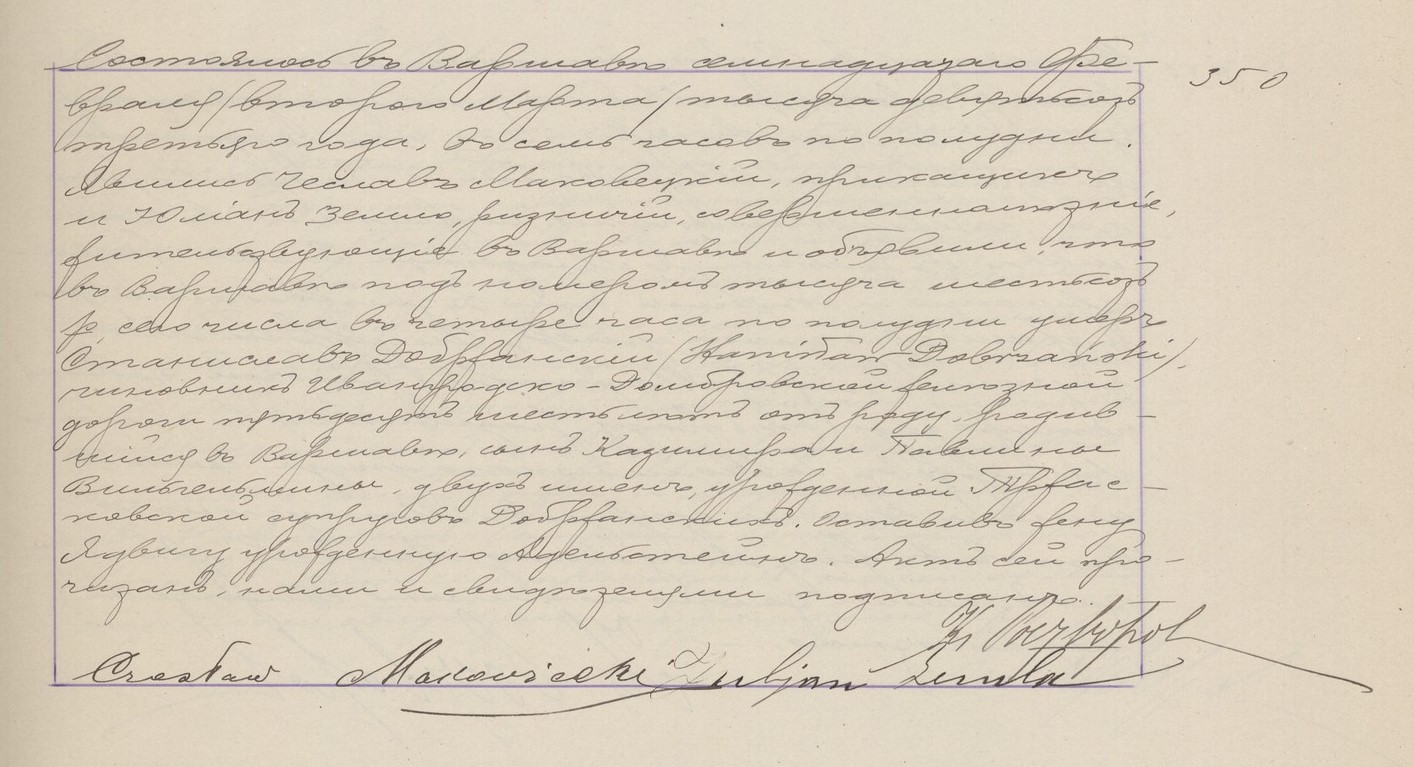 Состоялось въ Варшавѣ семнадцатаго Фе-
враля /второго Марта/ тысяча девятьсотъ
350
третьяго года, въ семь часовъ по полудни.
Явились Чеславъ Маковецкій, прикащикъ
и Юліанъ Земло, ризничій, совершеннолѣтніе,
жительствующіе въ Варшавѣ и объявили, что
въ Варшавѣ подъ номеромъ тысяча шестьсотъ
сего числа въ четыре часа по полудни умеръ
Станиславъ Добржанскій /Stanisław Dobrzański/,
чиновникъ Ивангродско-Домбровской желѣзной
дороги пятьдесятъ шесть лѣтъ отъ роду, родив-
шійся въ Варшавѣ, сынъ Казимира и Павлины
Вильгельмины, двухъ именъ, урожденной Тржас-
ковской супруговъ Добржанскихъ. Оставивъ жену
Ядвигу урожденную Адельстейнъ. Актъ сей про-
читанъ, нами и свидѣтелями подписанъ.
Czesław Makowiecki Juljan Zemla